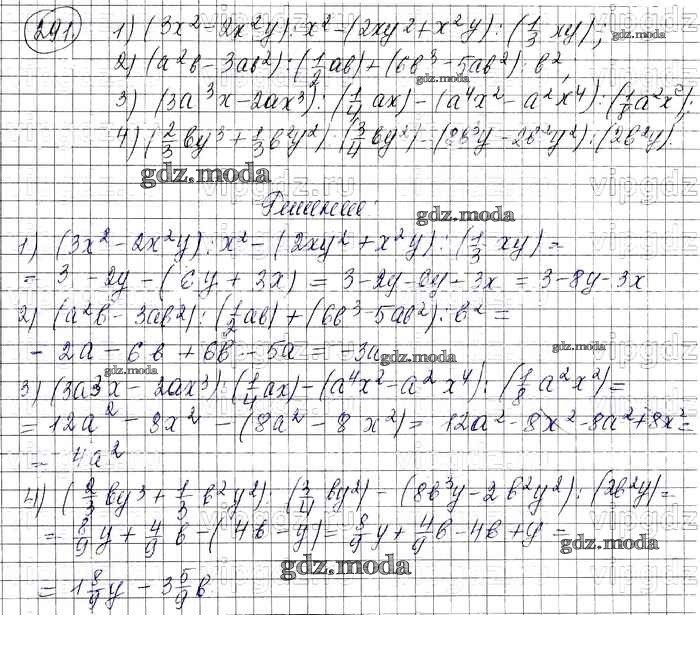 291. 1) (3x² - 2x²y) : x² - (2xy² + x²y) : (1/3 xy);
2) (a²b - 3ab²) : (1/2 ab) + (6b³ - 5ab²) : b²;
3) (3a³x - 2ax³) : (1/4 ax) - (a⁴x² - a²x⁴) : (1/8 a²x²);
4) (2/3 by³ + 1/3 b²y²) : (3/4 by²) - (8b³y - 2b²y²) : (2b²y).
gdz.moda
Решение:
gdz.moda
1) (3x² - 2x²y) : x² - (2xy² + x²y) : (1/3 xy) =
= 3 - 2y - (6y + 3x) = 3 - 2y - 6y - 3x = 3 - 8y - 3x
2) (a²b - 3ab²) : (1/2 ab) + (6b³ - 5ab²) : b² =
- 2a - 6b + 6b - 5a = -3a
gdz.moda
3) (3a3x - 2ax³) : (1/4 ax) - (a⁴x² - a²x⁴) : (1/8 a²x²) =
= 12a² - 8x² - (8a² - 8x²) = 12a² - 8x² - 8a² + 8x² =
= 4a²
4) (2/3 by³ + 1/3 b²y²) : (3/4 by²) - (8b³y - 2b²y²) : (2b²y) =
= 8/9 y + 4/9 b - (4b - y) = 8/9 y + 4/9 b - 4b + y =
gdz.moda
= 1 8/9 y - 3 5/9 b